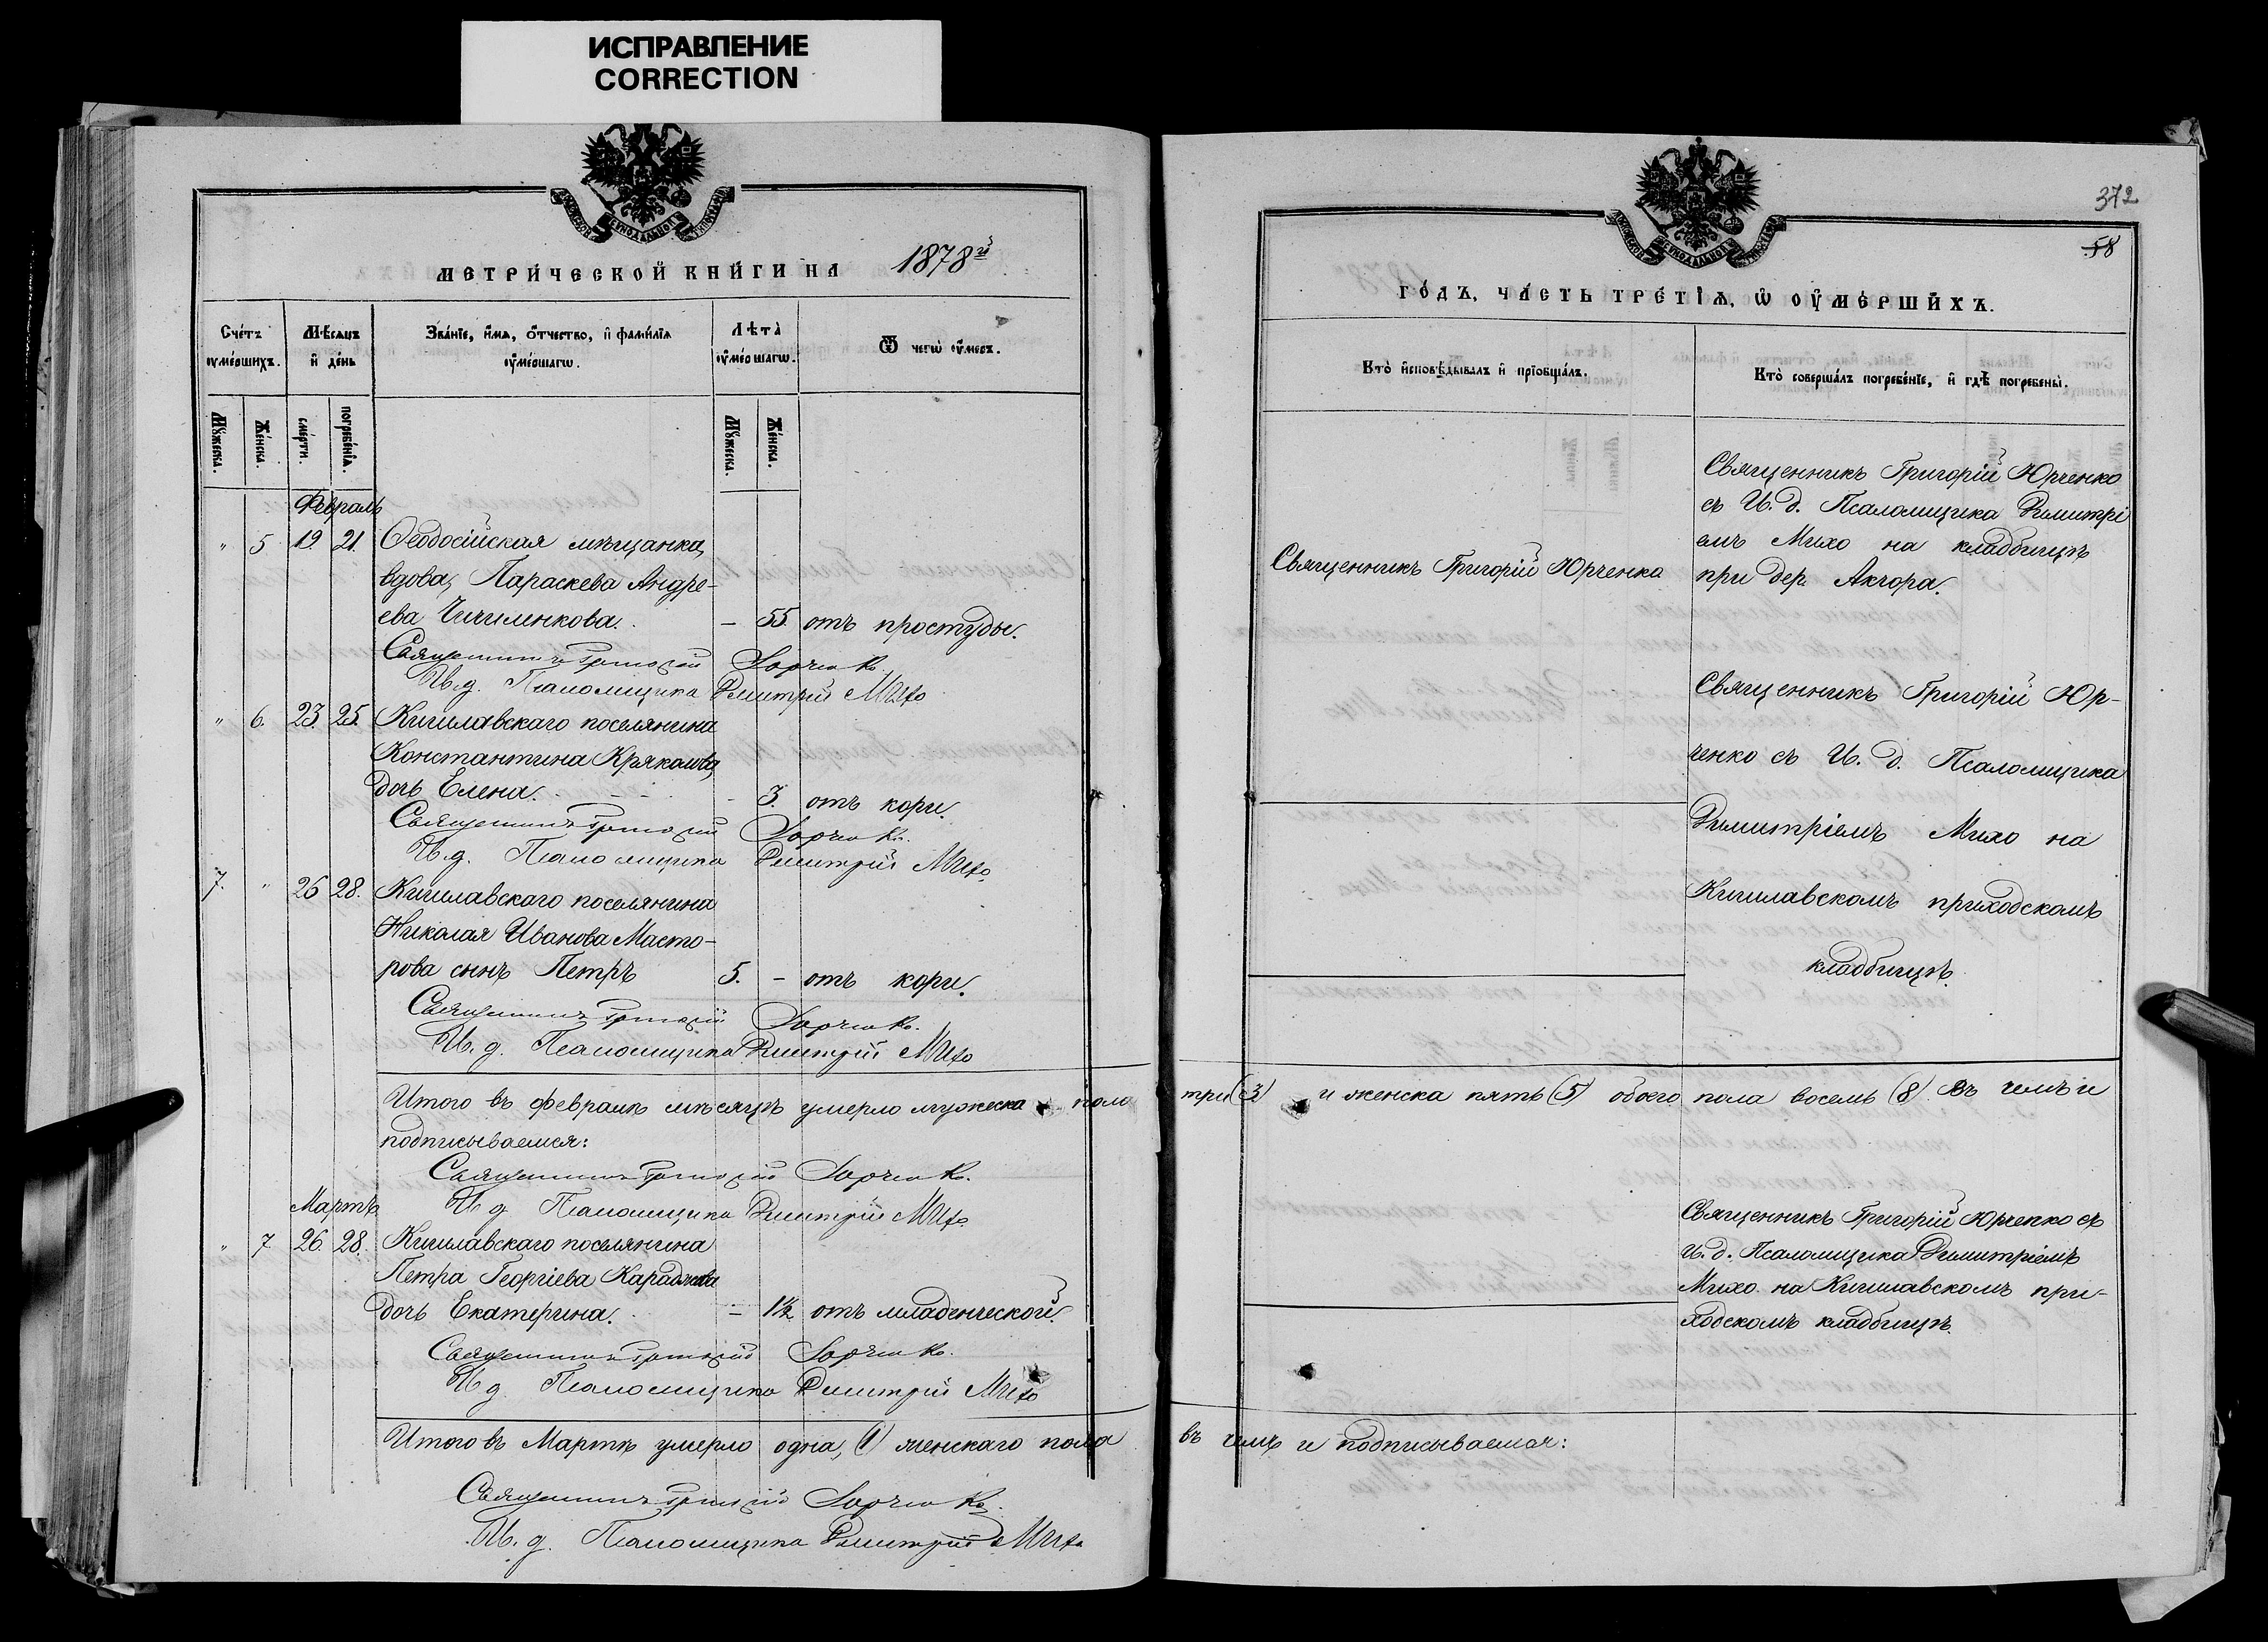 ИСПРАВЛЕНИЕ
CORRECTION
МЕТРИЧЕСКОЙ КНИГИ НА 1878й
Счетъ умершихъ.
Мѣсяцъ и день
Званіе, имя, отчество, и фамилія умершагѡ.
Лѣта умершагѡ.
Ѿ чегѡ умеръ.
Мужеска.
Женска.
смерти.
погребенія.
Мужеска.
Женска.
Февраль
" 5 19. 21. Ѳеодосійская мѣщанка,
вдова, Параскева Андре-
ева Чичиленкова. – 55. отъ простуды.
Священникъ Григорій Юрченко
И. д. Псаломщика Димитрій Михо
" 6. 23. 25. Кишлавскаго поселянина
Константина Крякашева
дочь Елена. - 3. отъ кори.
Священникъ Григорій Юрченко.
И. д. Псаломщика Димитрій Михо.
7. " 26 28. Кишлавскаго поселянина
Николая Иванова Масто-
рова сынъ Петръ 5. – отъ кори.
Священникъ Григорій Юрченко.
И. д. Псаломщика Димитрій Михо
Итого въ февралѣ мѣсяцѣ умерло мужеска пола
подписываемся:
Священникъ Григорій Юрченко.
И. д. Псаломщика Димитрій Михо
Мартъ
" 7 26. 28. Кишлавскаго поселянина
Петра Георгіева
дочь Екатерина. – 1½ отъ младенческой.
Священникъ Григорій Юрченко.
И. д. Псаломщика Димитрій Михо
Итого въ Мартѣ умерло одна, (1) женскаго пола
Священникъ Григорій Юрченко.
И. д. Псаломщика Димитрій Михо
372
58
ГОДЪ, ЧАСТЬ ТРЕТІЯ, Ѡ ОУМЕРШИХЪ.
Кто исповѣдывалъ и пріобщалъ.
Кто совершалъ погребеніе, и гдѣ погребены.
Священникъ Григорій Юрченко
Священникъ Григорій Юрченко
съ И. д. Псаломщика Димитрі
емъ Михо на кладбищѣ
при дер. Акчора.
Священникъ Григорій Юр-
ченко съ И. д. Псаломщика
Димитріемъ Михо на
Кишлавскомъ приходскомъ
кладбищѣ.
три (3) и женска пять (5) обоего пола восемь (8). Въ чемъ и
Священникъ Григорій Юрченко съ
И. д. Псаломщика Димитріемъ
Михо на Кишлавскомъ при-
ходскомъ кладбищѣ.
въ чемъ и подписываемся: